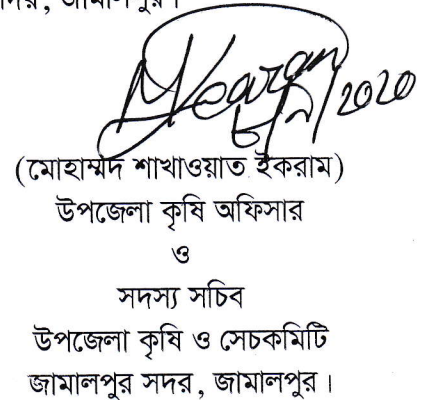 জামালপুর।
2020
(মোহাম্মদ শাখাওয়াত ইকরাম)
উপজেলা কৃষি অফিসার
ও
সদস্য সচিব
উপজেলা কৃষি ও সেচকমিটি
জামালপুর সদর, জামালপুর।